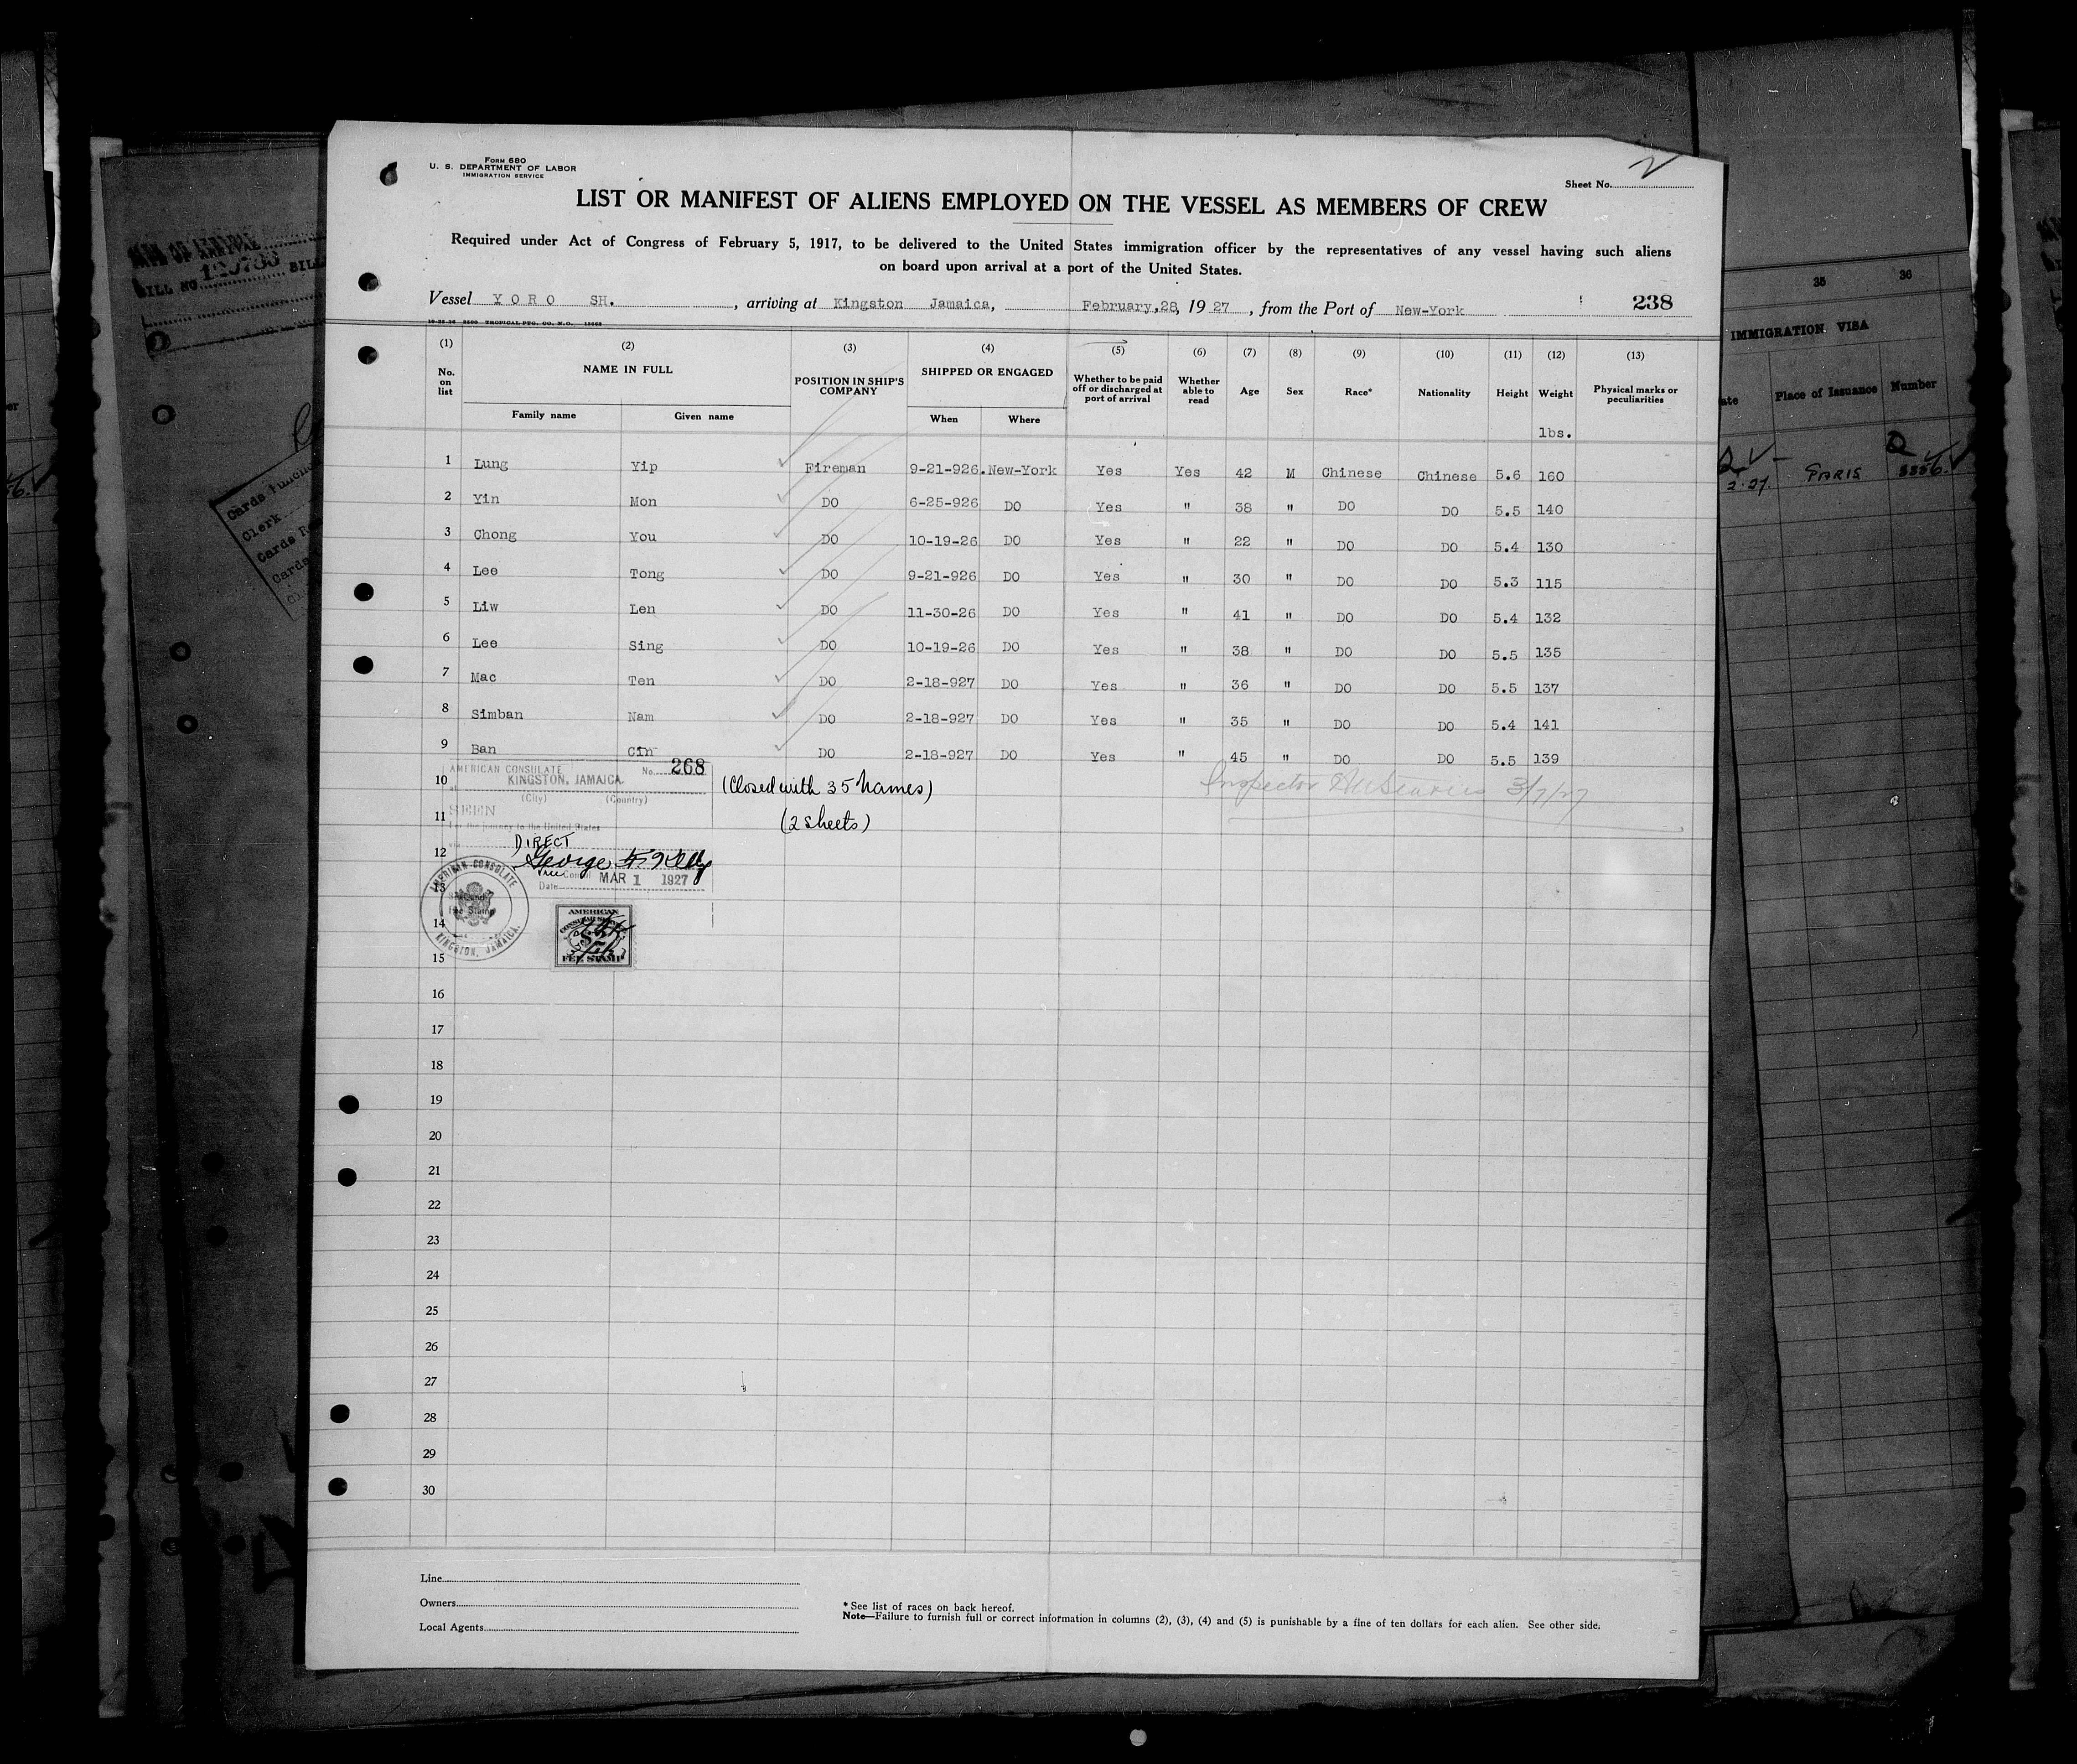 Form 680
U. S. DEPARTMENT OF LABOR
IMMIGRATION SERVICE
Sheet No. 2
LIST OR MANIFEST OF ALIENS EMPLOYED ON THE VESSEL AS MEMBERS OF CREW
Required under Act of Congress of February 5, 1917, to be delivered to the United States immigration officer by the representatives of any vessel having such aliens
on board upon arrival at a port of the United States.
Vessel YORO SH., arriving at Kingston Jamaica, February,28, 1927, from the Port of New-York 238
(1) (2) (3) (4) (5) (6) (7) (8) (9) (10) (11) (12) (13)
No. on list NAME IN FULL POSITION IN SHIP'S COMPANY SHIPPED OR ENGAGED Whether to be paid off or discharged at port of arrival Whether able to read Age Sex Race* Nationality Height Weight Physical marks or peculiarities
Family name Given name When Where
lbs.
1 Lung Yip Fireman 9-21-926. New-York Yes Yes 42 M Chinese Chinese 5.6 160
2 Yin Mon DO 6-25-926 DO Yes " 38 " DO DO 5.5 140
3 Chong You DO 10-19-26 DO Yes " 22 " DO DO 5.4 130
4 Lee Tong DO 9-21-926 DO Yes " 30 " DO DO 5.3 115
5 Liw Len DO 11-30-26 DO Yes " 41 " DO DO 5.4 132
6 Lee Sing DO 10-19-26 DO Yes " 38 " DO DO 5.5 135
7 Mac Ten DO 2-18-927 DO Yes " 36 " DO DO 5.5 137
8 Simban Nam DO 2-18-927 DO Yes " 35 " DO DO 5.4 141
9 Ban Cin DO 2-18-927 DO Yes " 45 " DO DO 5.5 139
AMERICAN CONSULATE No. 268
10 KINGSTON, JAMAICA. (Closed with 35 Names) Inspector 3/7/27
(City) (Country)
SEEN
11 (2 sheets)
For the journey to the United States
12 DIRECT
George
Vice Consul
Date MAR 1 1927
13
AMERICAN CONSULATE
KINGSTON, JAMAICA.
14
AMERICAN
FEE STAMP
15
16
17
18
19
20
21
22
23
24
25
26
27
28
29
30
Line
Owners
Local Agents
* See list of races on back hereof.
Note—Failure to furnish full or correct information in columns (2), (3), (4) and (5) is punishable by a fine of ten dollars for each alien. See other side.
35 36
IMMIGRATION VISA
Place of Issuance Number
PARIS
Clerk